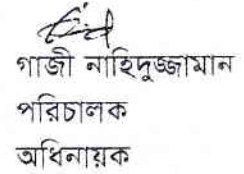 গাজী নাহিদুজ্জামান
পরিচালক
অধিনায়ক